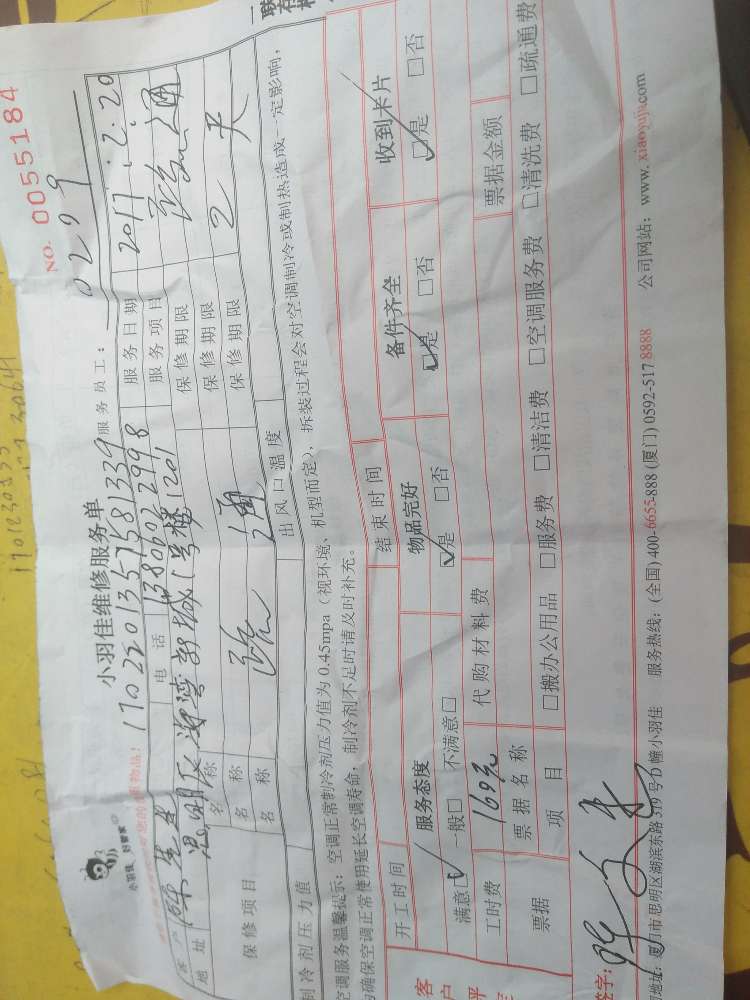 NO. 0055184
小羽佳 好管家
小羽佳维修服务单
服务员工： 0299
17022013575581339
客户 陈先生 电话 13806022998 服务日期 2017.2.20
地址 思明区 海湾新城1号楼1201 服务项目
保修项目 名称 保修期限
名称 保修期限 2天
名称 疏通 保修期限
制冷剂压力值 出风口温度
空调服务温馨提示：空调正常制冷剂压力值为0.45mpa（视环境、机型而定），拆装过程会对空调制冷或制热造成一定影响，
为确保空调正常使用延长空调寿命，制冷剂不足时请及时补充。
开工时间 结束时间
服务态度 物品完好 备件齐全 收到卡片
满意□✓ 一般□ 不满意□ ☑是 □否 ☑是 □否 ☑是 □否
工时费 169元 代购材料费
票据 票据名称 票据金额
项目 □搬办公用品 □服务费 □清洁费 □空调服务费 □清洗费 □疏通费
签字：
地址：厦门市思明区湖滨东路319号D幢小羽佳 服务热线：(全国) 400-6655-888 (厦门) 0592-517 8888 公司网站：www.xiaoyujia.com